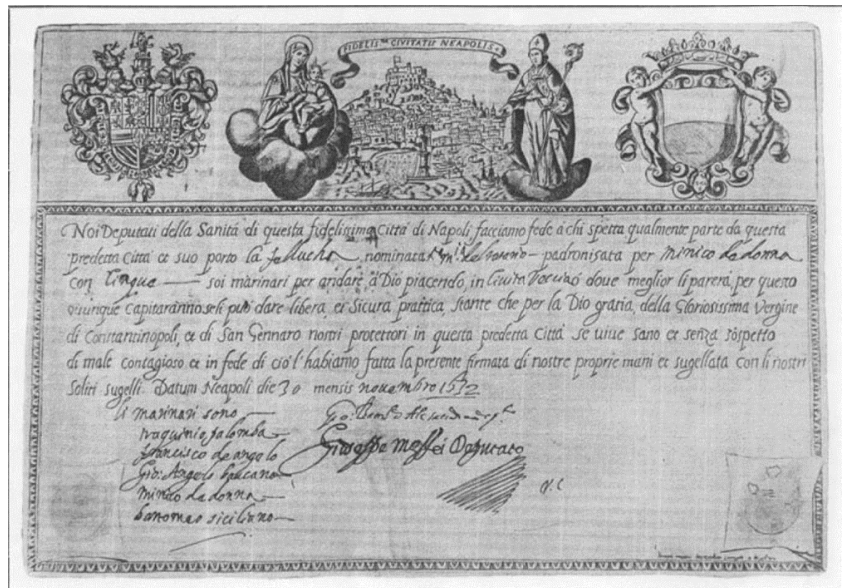 FIDELIS.ᵐᵃᵉ CIVITATIS NEAPOLIS
Noi Deputati della Sanità di questa fidelissima Città di Napoli facciamo fede à chi spetta qualmente parte da questa
predetta Città et suo porto la fellucha nominata padronisata per minico de donna
con Cinque soi marinari per andare à Dio piacendo, in Civita Vecchia ò dove meglior li parerà, per questo
quunque capitaranno seli può dare libera, et sicura prattica, stante che per la Dio gratia, della Gloriosissima Vergine
di Constantinopoli, et di San Gennaro nostri protettori in questa predetta Città se vive sano et senza sospetto
di male contagioso et in fede di ciò l'habiamo fatta la presente firmata di nostre proprie mani et sugellata con li nostri
soliti sugelli. Datum Neapoli die 30 mensis novembro 1632
li marinari sono
palomba
francisco de angelo
Gio: Angelo
minico de donna
siciliano
Giuseppe Deputato